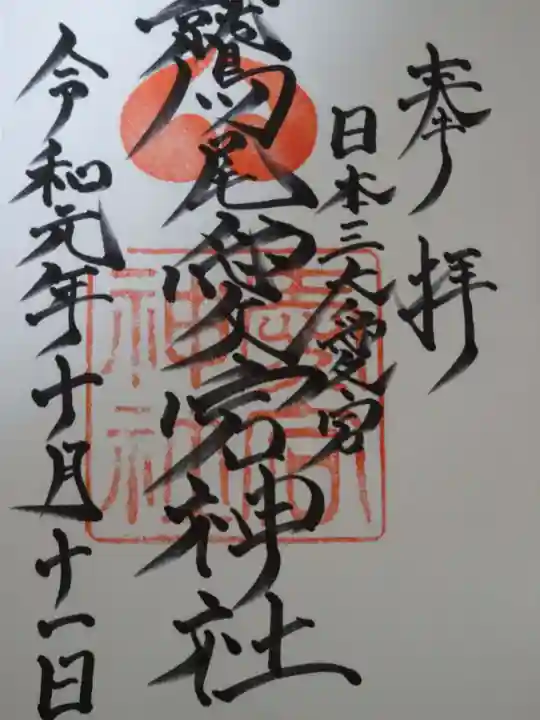 奉拝
日本三大愛宕
鷲尾愛宕神社
令和元年十月十一日
愛宕神社